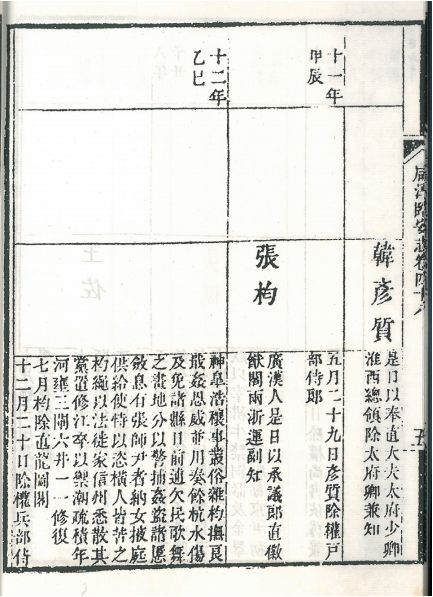 咸淳臨安志卷四十八
五
韓彥質
是日以奉直大夫太府少卿
淮西總領除太府卿兼知
十一年
甲辰
五月二十九日彥質除權戶
部侍郎
張杓
廣漢人是日以承議郎直徽
猷閣兩浙運副知
十二年
乙巳
神皐浩穰事叢俗雜杓撫良
戢姦恩威並用奏餘杭水傷
及免諸縣日前逋欠民歌舞
之畫地分以警捕姦盜諸慝
斂息有張師尹者納女掖庭
供給使恃以恣橫人皆苦之
杓繩以法徙家信州悉散其
黨置修江卒以禦潮疏積年
河壅三閘六井一一修復
七月杓除直龍圖閣
十二月二十日除權兵部侍